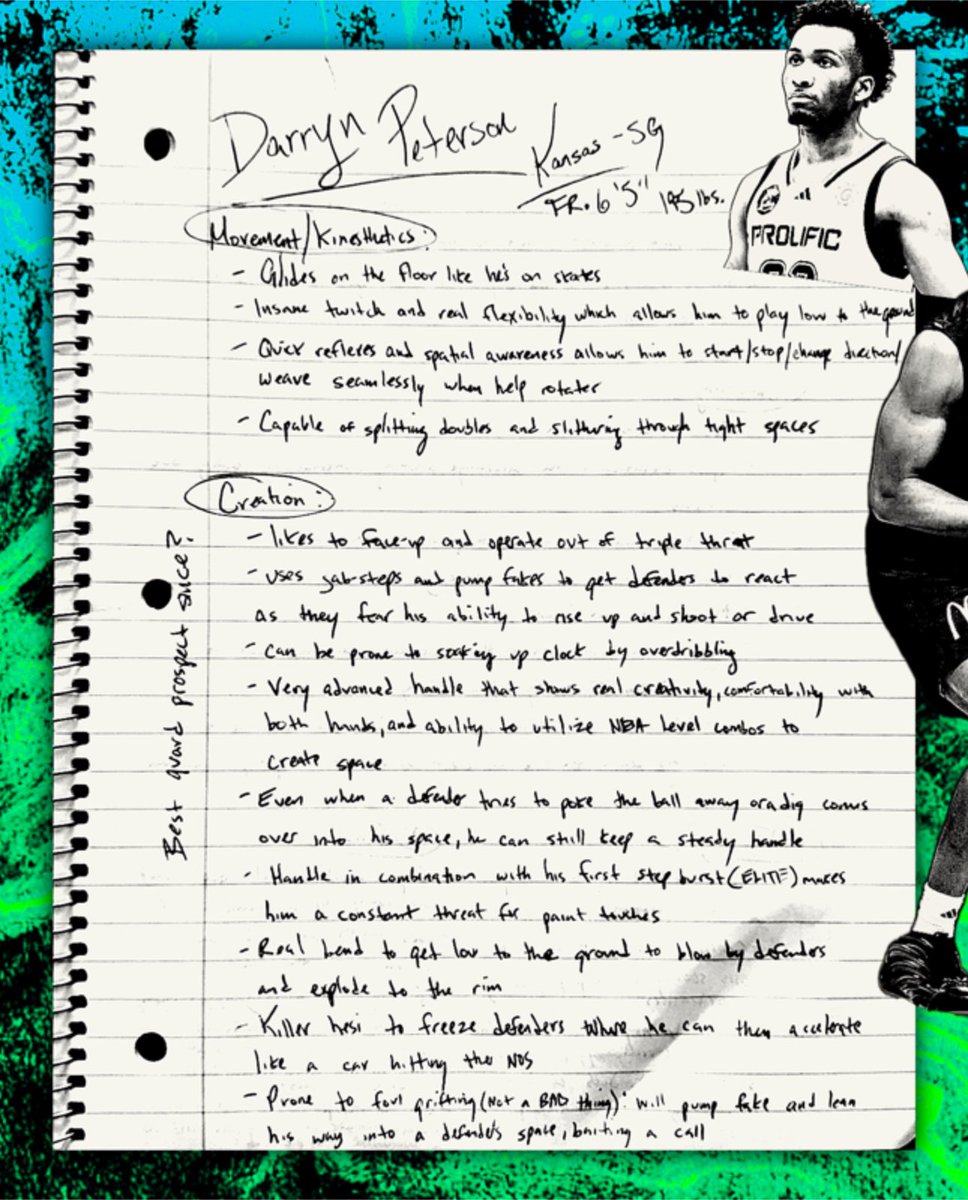 Darryn Peterson
Kansas - SG
FR. 6'5" 195 lbs.
PROLIFIC
Movement/Kinesthetics:
- Glides on the floor like he's on skates
- Insane twitch and real flexibility which allows him to play low to the ground
- Quick reflexes and spatial awareness allows him to start/stop/change direction/
weave seamlessly when help rotates
- Capable of splitting doubles and slithering through tight spaces
Creation:
- likes to face-up and operate out of triple threat
- uses jab-steps and pump fakes to get defenders to react
as they fear his ability to rise up and shoot or drive
- can be prone to soaking up clock by overdribbling
- Very advanced handle that shows real creativity, comfortability with
both hands, and ability to utilize NBA level combos to
create space
- Even when a defender tries to poke the ball away or a dig comes
over into his space, he can still keep a steady handle
- Handle in combination with his first step burst (ELITE) makes
him a constant threat for paint touches
- Real bend to get low to the ground to blow by defenders
and explode to the rim
- Killer hesi to freeze defenders where he can then accelerate
like a car hitting the NOS
- Prone to foul grifting (Not a BAD thing): will pump fake and lean
his way into a defender's space, baiting a call
Best guard prospect since?